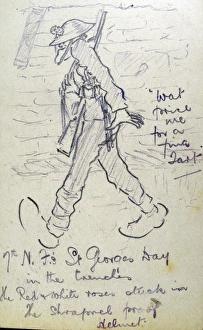 "Wot
price
me
for a
fine
Tart.
7th N. F's St Georges Day
in the trenches
the Red & White roses stuck in
the Shrapnel proof
Helmet.